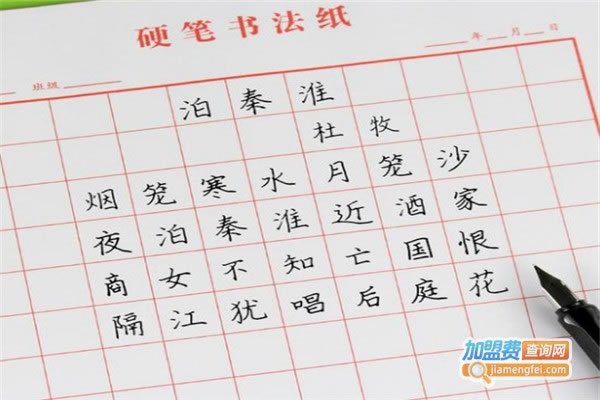 硬笔书法纸
班级
年 月 日
泊秦淮
杜牧
烟笼寒水月笼沙
夜泊秦淮近酒家
商女不知亡国恨
隔江犹唱后庭花
加盟费查询网
jiamengfei.com